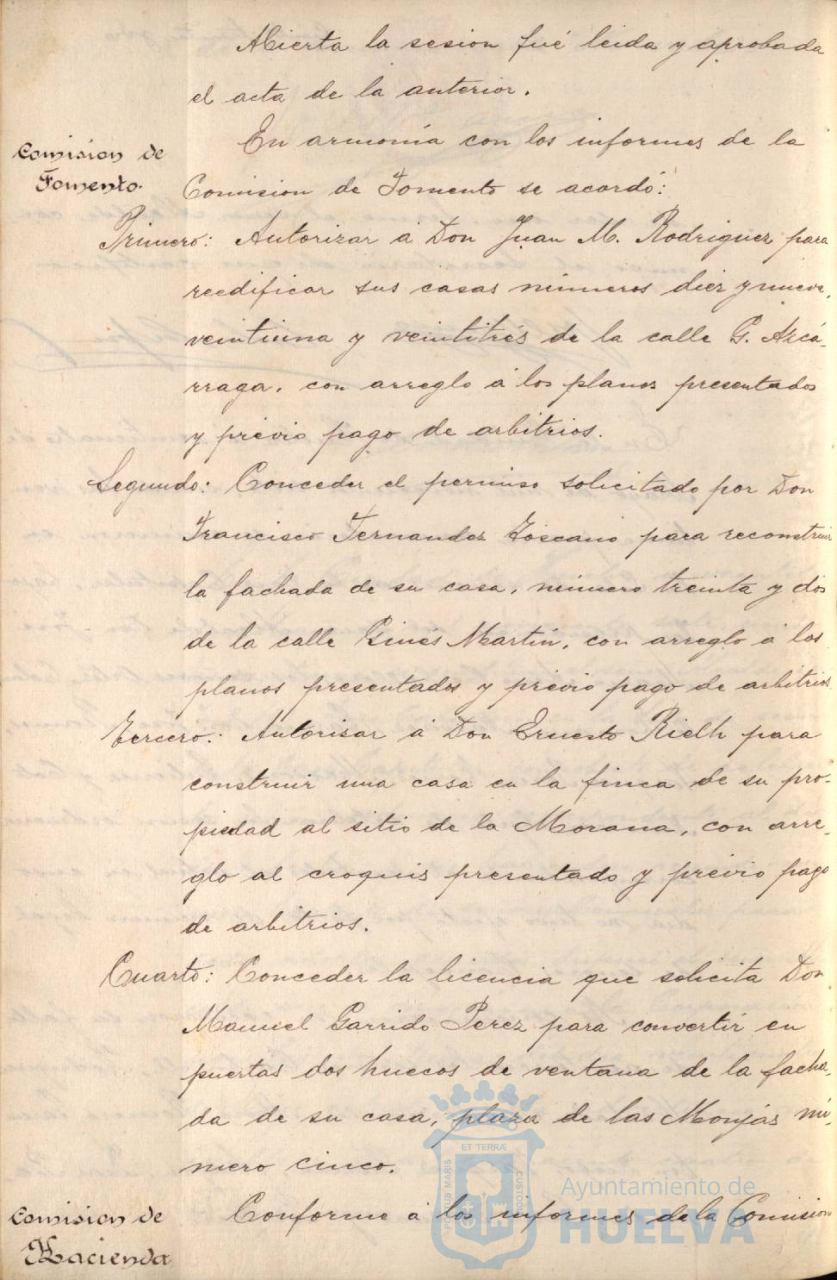 Abierta la sesion fué leida y aprobada
el acta de la anterior.
Comision de
Fomento.
En armonía con los informes de la
Comision de Fomento se acordó:
Primero: Autorizar á Don Juan M. Rodriguez para
reedificar sus casas números diez y nueve,
veintiuna y veintitrés de la calle G. Azcá-
rraga, con arreglo á los planos presentados
y prévio pago de arbitrios.
Segundo: Conceder el permiso solicitado por Don
Francisco Fernandez Toscano para reconstruir
la fachada de su casa, número treinta y dos
de la calle Ginés Martín, con arreglo á los
planos presentados y prévio pago de arbitrios
Tercero: Autorisar á Don Ernesto Rielh para
construir una casa en la finca de su pro-
piedad al sitio de la Morana, con arre-
glo al croquis presentado y prévio pago
de arbitrios.
Cuarto: Conceder la licencia que solicita Don
Manuel Garrido Perez para convertir en
puertas dos huecos de ventana de la facha-
da de su casa, plaza de las Monjas nú-
mero cinco.
Comision de
Hacienda
Conforme á los informes de la Comision
ET TERRÆ
PORTUS MARIS
CUSTODIA
Ayuntamiento de
HUELVA